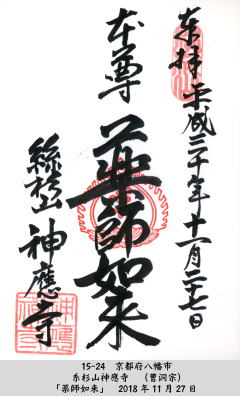 奉拝 平成三十年十一月二十七日
本尊
薬師如来
絲杉山 神應寺
15-24 京都府八幡市
糸杉山神應寺 （曹洞宗）
「薬師如来」 2018年11月27日